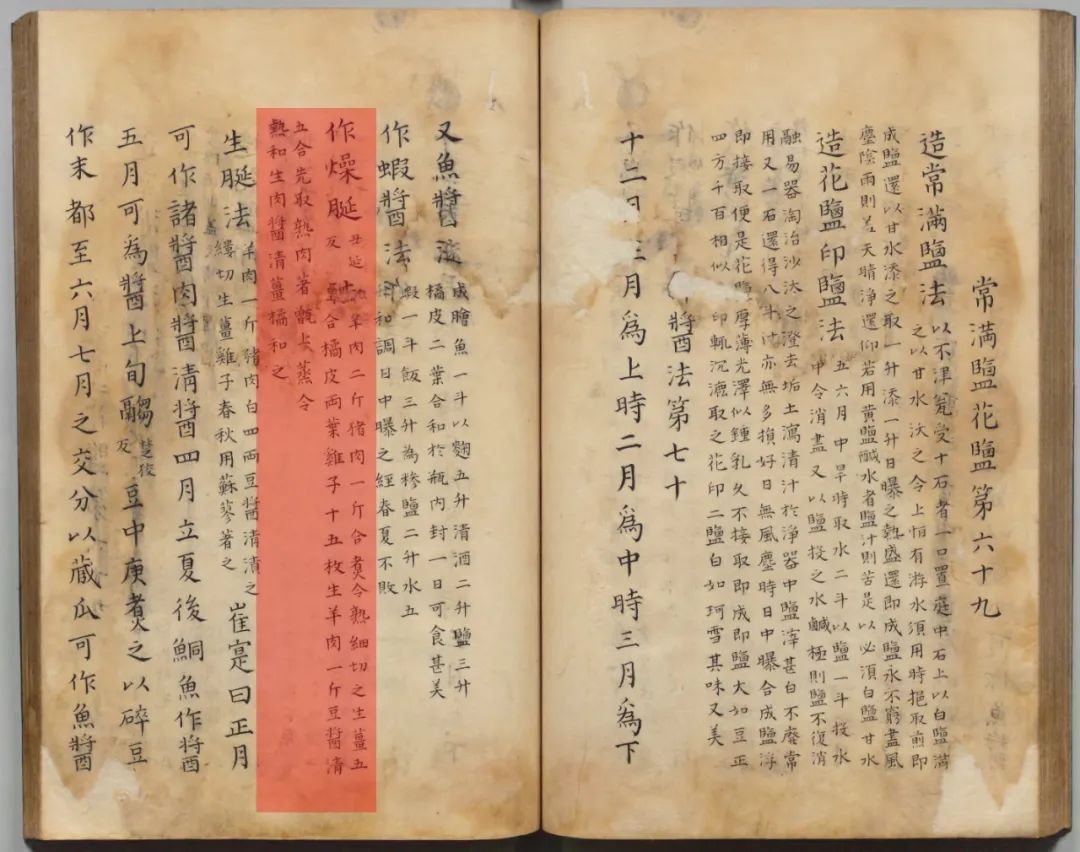 常滿鹽花鹽第六十九
造常滿鹽法
以不津瓮受十石者一口置庭中石上以白鹽滿
之以甘水沃之令上恒有游水須用時挹取煎即
成鹽還以甘水添之取一升添一升日曝之熱盛還即成鹽永不窮盡風
塵陰雨則蓋天晴淨還仰若用黃鹽鹹水者鹽汁則苦是以必須白鹽甘水
造花鹽印鹽法
五六月中旱時取水二斗以鹽一斗投水
中令消盡又以鹽投之水鹹極則鹽不復消
融易器淘治沙汰之澄去垢土瀉清汁於淨器中鹽滓甚白不廢常
用又一石還得八斗汁亦無多損好日無風塵時日中曝令成鹽浮
即接取便是花鹽厚薄光澤似鍾乳久不接取即成印鹽大如豆正
四方千百相似印輒沉漉取之花印二鹽白如珂雪其味又美
醬法第七十
十二月三月為上時二月為中時三月為下
又魚醬法
成膾魚一斗以麴五升清酒二升鹽三升
橘皮二葉合和於瓶內封一日可食甚美
作蝦醬法
蝦一斗飯三升為糝鹽二升水五
和調日中曝之經春夏不敗
作燥脠
丑延
反
羊肉二斤猪肉一斤合煑令熟細切之生薑五
合橘皮兩葉雞子十五枚生羊肉一斤豆醬清
五合先取熟肉著甑上蒸令
熱和生肉醬清薑橘和之
生脠法
羊肉一斤猪肉白四兩豆醬清漬之
縷切生薑雞子春秋用蘇蓼著之
崔寔曰正月
可作諸醬肉醬清醬四月立夏後鮦魚作醬
五月可為醬上旬
楚狡
反
豆中庚煑之以碎豆
作末都至六月七月之交分以藏瓜可作魚醬